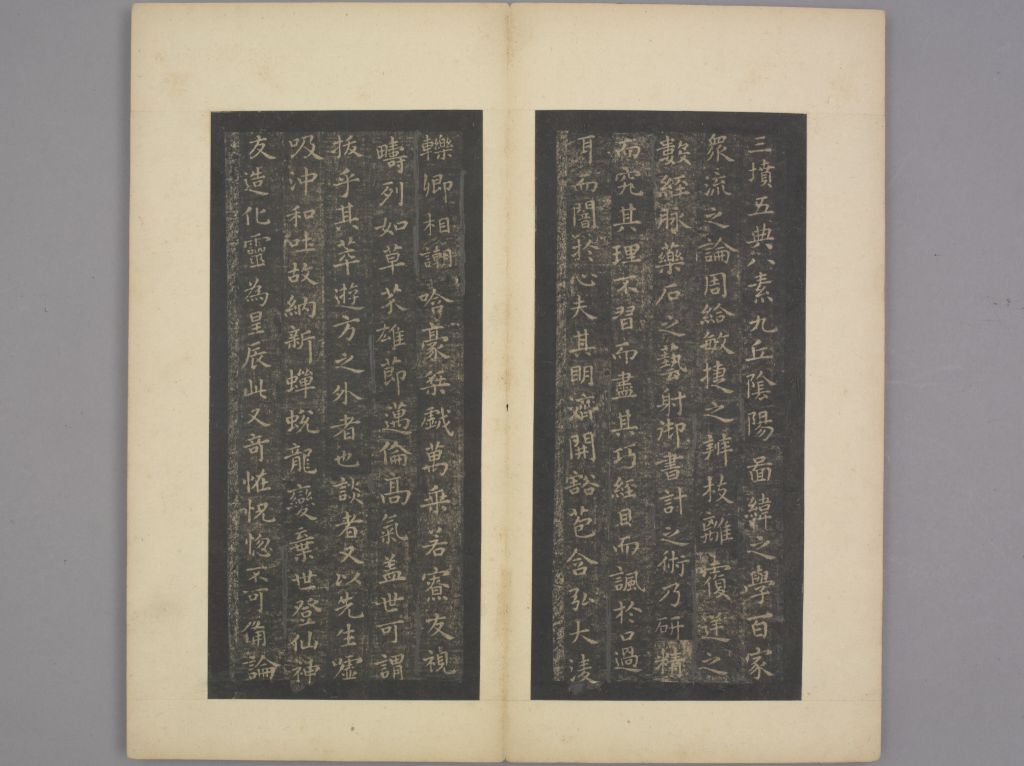 三墳五典八素九丘陰陽啚緯之學百家
眾流之論周給敏捷之辨枝離覆逆之
數經脉藥石之藝射御書計之術乃研精
而究其理不習而盡其巧經目而諷於口過
耳而闇於心夫其明濟開豁苞含弘大淩
轢卿相謿哈豪桀戱萬乘若寮友視
疇列如草芥雄節邁倫高氣蓋世可謂
拔乎其萃遊方之外者也談者又以先生噓
吸沖和吐故納新蟬蛻龍變棄世登仙神
友造化靈為星辰此又奇恠怳惚不可備論